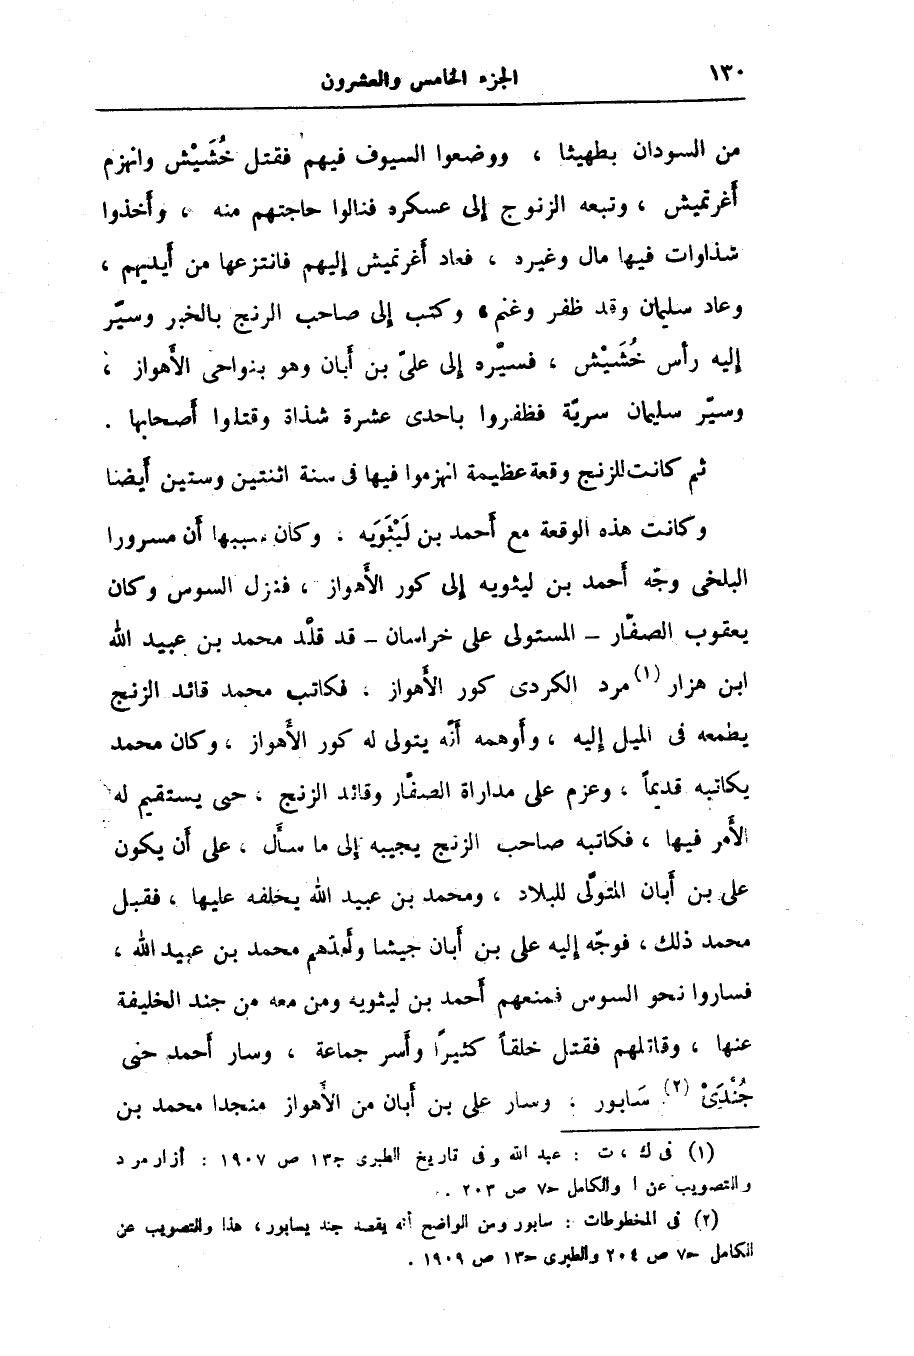 ١٣٠
الجزء الخامس والعشرون
من السودان بطهيثا ، ووضعوا السيوف فيهم فقتل خُشَيْش وانهزم
أغرتمش ، وتبعه الزنوج إلى عسكره فنالوا حاجتهم منه ، وأخذوا
شذاوات فيها مال وغيره ، فعاد أغرتميش إليهم فانتزعها من أيديهم ،
وعاد سليمان وقد ظفر وغنم ، وكتب إلى صاحب الزنج بالخبر وسيّر
إليه رأس خُشَيْش ، فسيّره إلى علىّ بن أبان وهو بنواحى الأهواز ،
وسيّر سليمان سريّة فظفروا باحدى عشرة شذاة وقتلوا أصحابها .
ثم كانت للزنج وقعة عظيمة انهزموا فيها فى سنة اثنتين وستين أيضا
وكانت هذه الوقعة مع أحمد بن لَيْثَوَيه ، وكان سببها أن مسرورا
البلخى وجّه أحمد بن ليثويه إلى كور الأهواز ، فنزل السوس وكان
يعقوب الصفّار – المستولى على خراسان – قد قلّد محمد بن عبيد الله
ابن هزار (١) مرد الكردى كور الأهواز ، فكاتب محمد قائد الزنج
يطمعه فى الميل إليه ، وأوهمه أنّه يتولى له كور الأهواز ، وكان محمد
يكاتبه قديماً ، وعزم على مداراة الصفّار وقائد الزنج ، حتى يستقيم له
الأمر فيها ، فكاتبه صاحب الزنج يجيبه إلى ما سأل ، على أن يكون
على بن أبان المتولّى للبلاد ، ومحمد بن عبيد الله يخلفه عليها ، فقبل
محمد ذلك ، فوجّه إليه على بن أبان جيشا وأمدّهم محمد بن عبيد الله ،
فساروا نحو السوس فمنعهم أحمد بن ليثويه ومن معه من جند الخليفة
عنها ، وقاتلهم فقتل خلقاً كثيرًا وأسر جماعة ، وسار أحمد حتى
جُنْدَىْ (٢) سَابور ، وسار على بن أبان من الأهواز منجدا محمد بن
(١) فى ك ، ت : عبد الله وفى تاريخ الطبرى ج١٣ ص ١٩٠٧ : أزار مرد
والتصويب عن ا والكامل ح٧ ص ٢٠٣ .
(٢) فى المخطوطات : سابور ومن الواضح أنه يقصد جند يسابور ، هذا والتصويب عن
الكامل ح٧ ص ٢٠٤ والطبرى ح١٣ ص ١٩٠٩ .